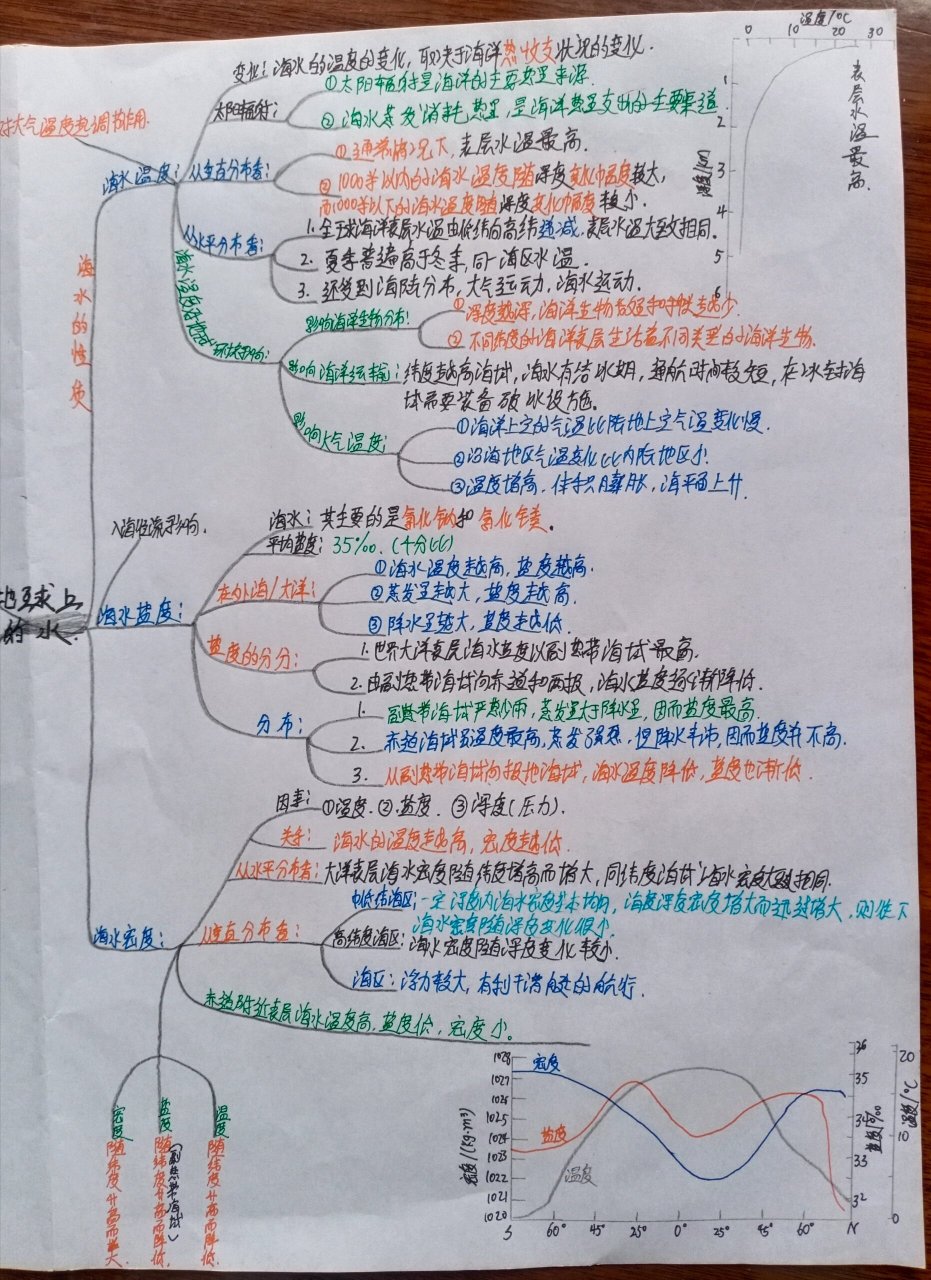 温度/°C
0 10 20 30
1
2
3
4
5
6
深度/(km)
表层水温最高.
地球上的水.
海水的性质
海水温度:
对大气温度起调节作用.
变化: 海水的温度的变化, 取决于海洋热收支状况的变化.
太阳辐射:
①太阳辐射是海洋的主要热量来源.
②海水蒸发消耗热量, 是海洋热量支出的主要渠道.
从垂直分布看:
①通常情况下, 表层水温最高.
②1000米以内的海水温度随深度变化幅度较大,
而1000米以下的海水温度随深度变化幅度较小.
从水平分布看:
1. 全球海洋表层水温由低纬向高纬递减. 表层水温大致相同.
2. 夏季普遍高于冬季, 同一海区水温.
3. 还受到海陆分布, 大气运动, 海水运动.
影响海洋生物分布:
①深度越深, 海洋生物
②不同纬度的海洋表层生活着不同类型的海洋生物.
影响海洋运输:
纬度越高海域, 海水有结冰期, 通航时间较短, 在冰封海
域需要装备破冰设施.
影响大气温度:
①海洋上空的气温比陆地上空气温变化慢.
②沿海地区气温变化比内陆地区小.
③温度增高. 体积膨胀, 海平面上升.
海水盐度:
入海径流影响.
海水: 其主要的是氯化钠和氯化镁.
平均盐度: 35‰. (千分比)
在外海/大洋:
①海水温度越高, 盐度越高.
②蒸发量越大, 盐度越高.
③降水量越大, 盐度越低.
盐度的分分:
1. 世界大洋表层海水盐度以副热带海域最高.
2. 由副热带海域向赤道和两极, 海水盐度逐渐降低.
分布:
1. 副热带海域炎热少雨, 蒸发量大于降水量, 因而盐度最高.
2. 赤道海域虽温度最高, 蒸发强烈, 但降水丰沛, 因而盐度并不高.
3. 从副热带海域向极地海域, 海水温度降低, 盐度也渐低.
海水密度:
因素: ①温度. ②盐度. ③深度(压力).
关系: 海水的温度越高, 密度越低.
从水平分布看: 大洋表层海水密度随纬度增高而增大, 同纬度海域海水密度大致相同.
从垂直分布看:
中低纬海区: 一定深度内海水密度基本均匀, 海度深度密度增大而迅速增大, 则往下
海水密度随深度变化很小.
高纬度海区: 海水密度随深度变化较小.
海区: 浮力较大, 有利于潜艇的航行.
赤道附近表层海水温度高, 盐度低, 密度小.
密度 随纬度升高而增大.
盐度 随纬度升高而降低. (副热带海域)
温度 随纬度升高而降低.
密度/(kg·m³)
1028
1027
1026
1025
1024
1023
1022
1021
1020
密度
盐度
温度
S 60° 45° 25° 0° 25° 45° 60° N
36
35
34
33
32
盐度/‰
20
10
0
温度/°C